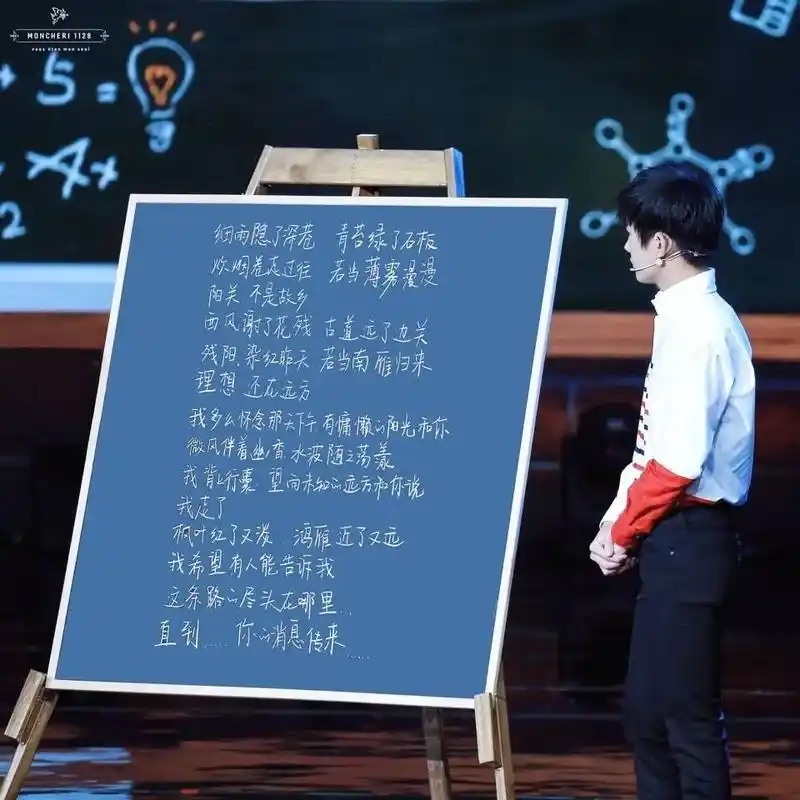 MONCHERI 1128
vous êtes mon seul
+ 5 =
x
2
细雨隐了深巷 青苔绿了石板
炊烟卷走过往 若当薄雾漫漫
阳关 不是故乡
西风谢了花残 古道远了边关
残阳,染红昨天 若当南雁归来
理想 还在远方
我多么怀念那天下午 有慵懒的阳光和你
微风伴着幽香 水波随之荡漾
我背上行囊 望向未知的远方和你说
我走了
枫叶红了又淡 鸿雁近了又远
我希望有人能告诉我
这条路的尽头在哪里...
直到..... 你的消息传来.....